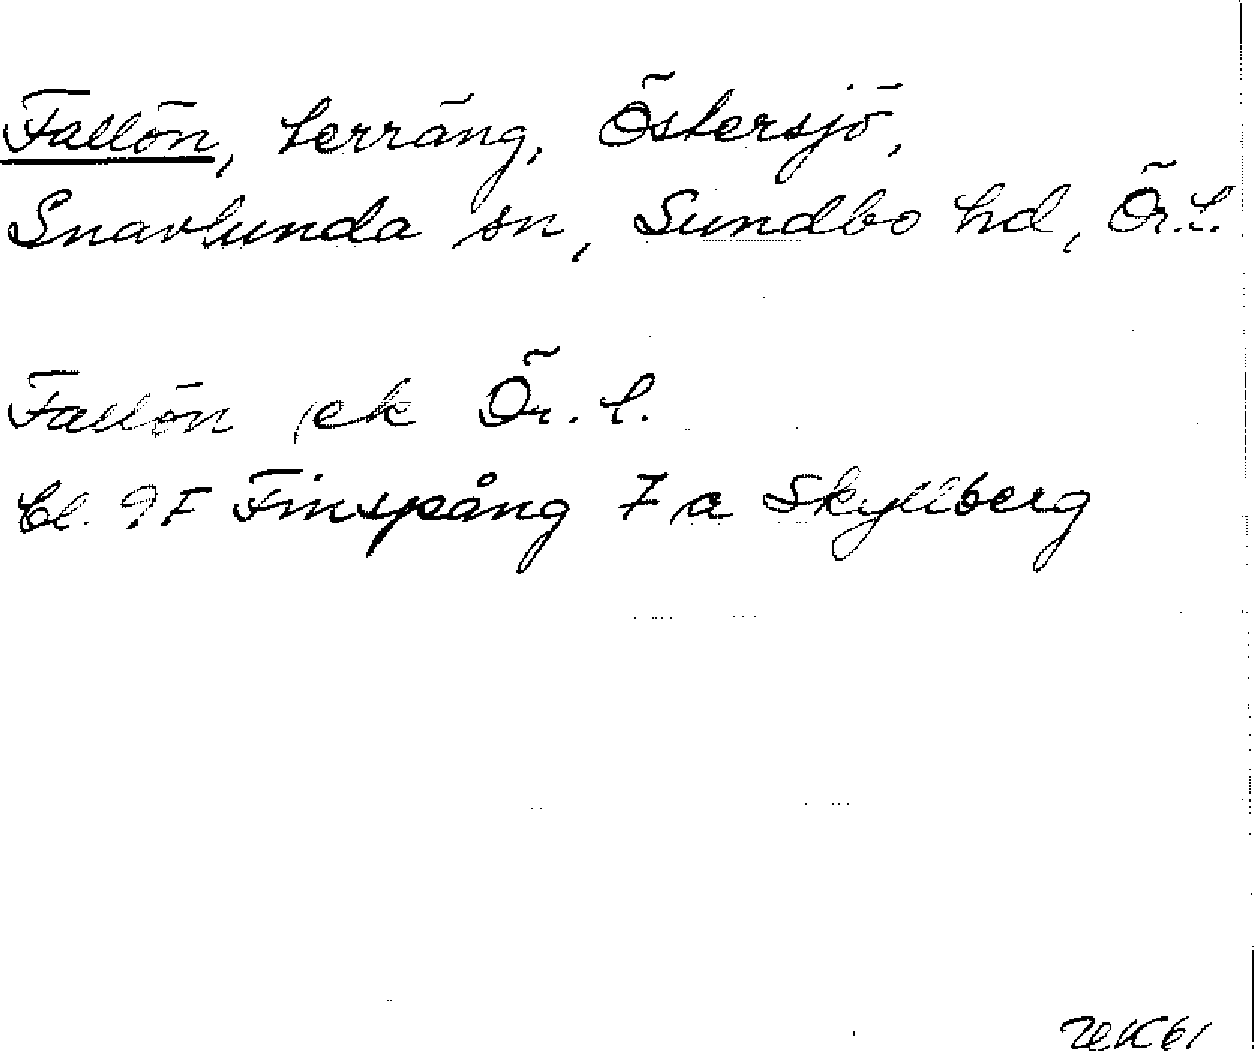 Fallön, terräng, Östersjö,
Snavlunda sn, Sundbo hd, Ör.l.
Fallön ek Ör.l.
bl. 9F Finspång 7 a Skyllberg